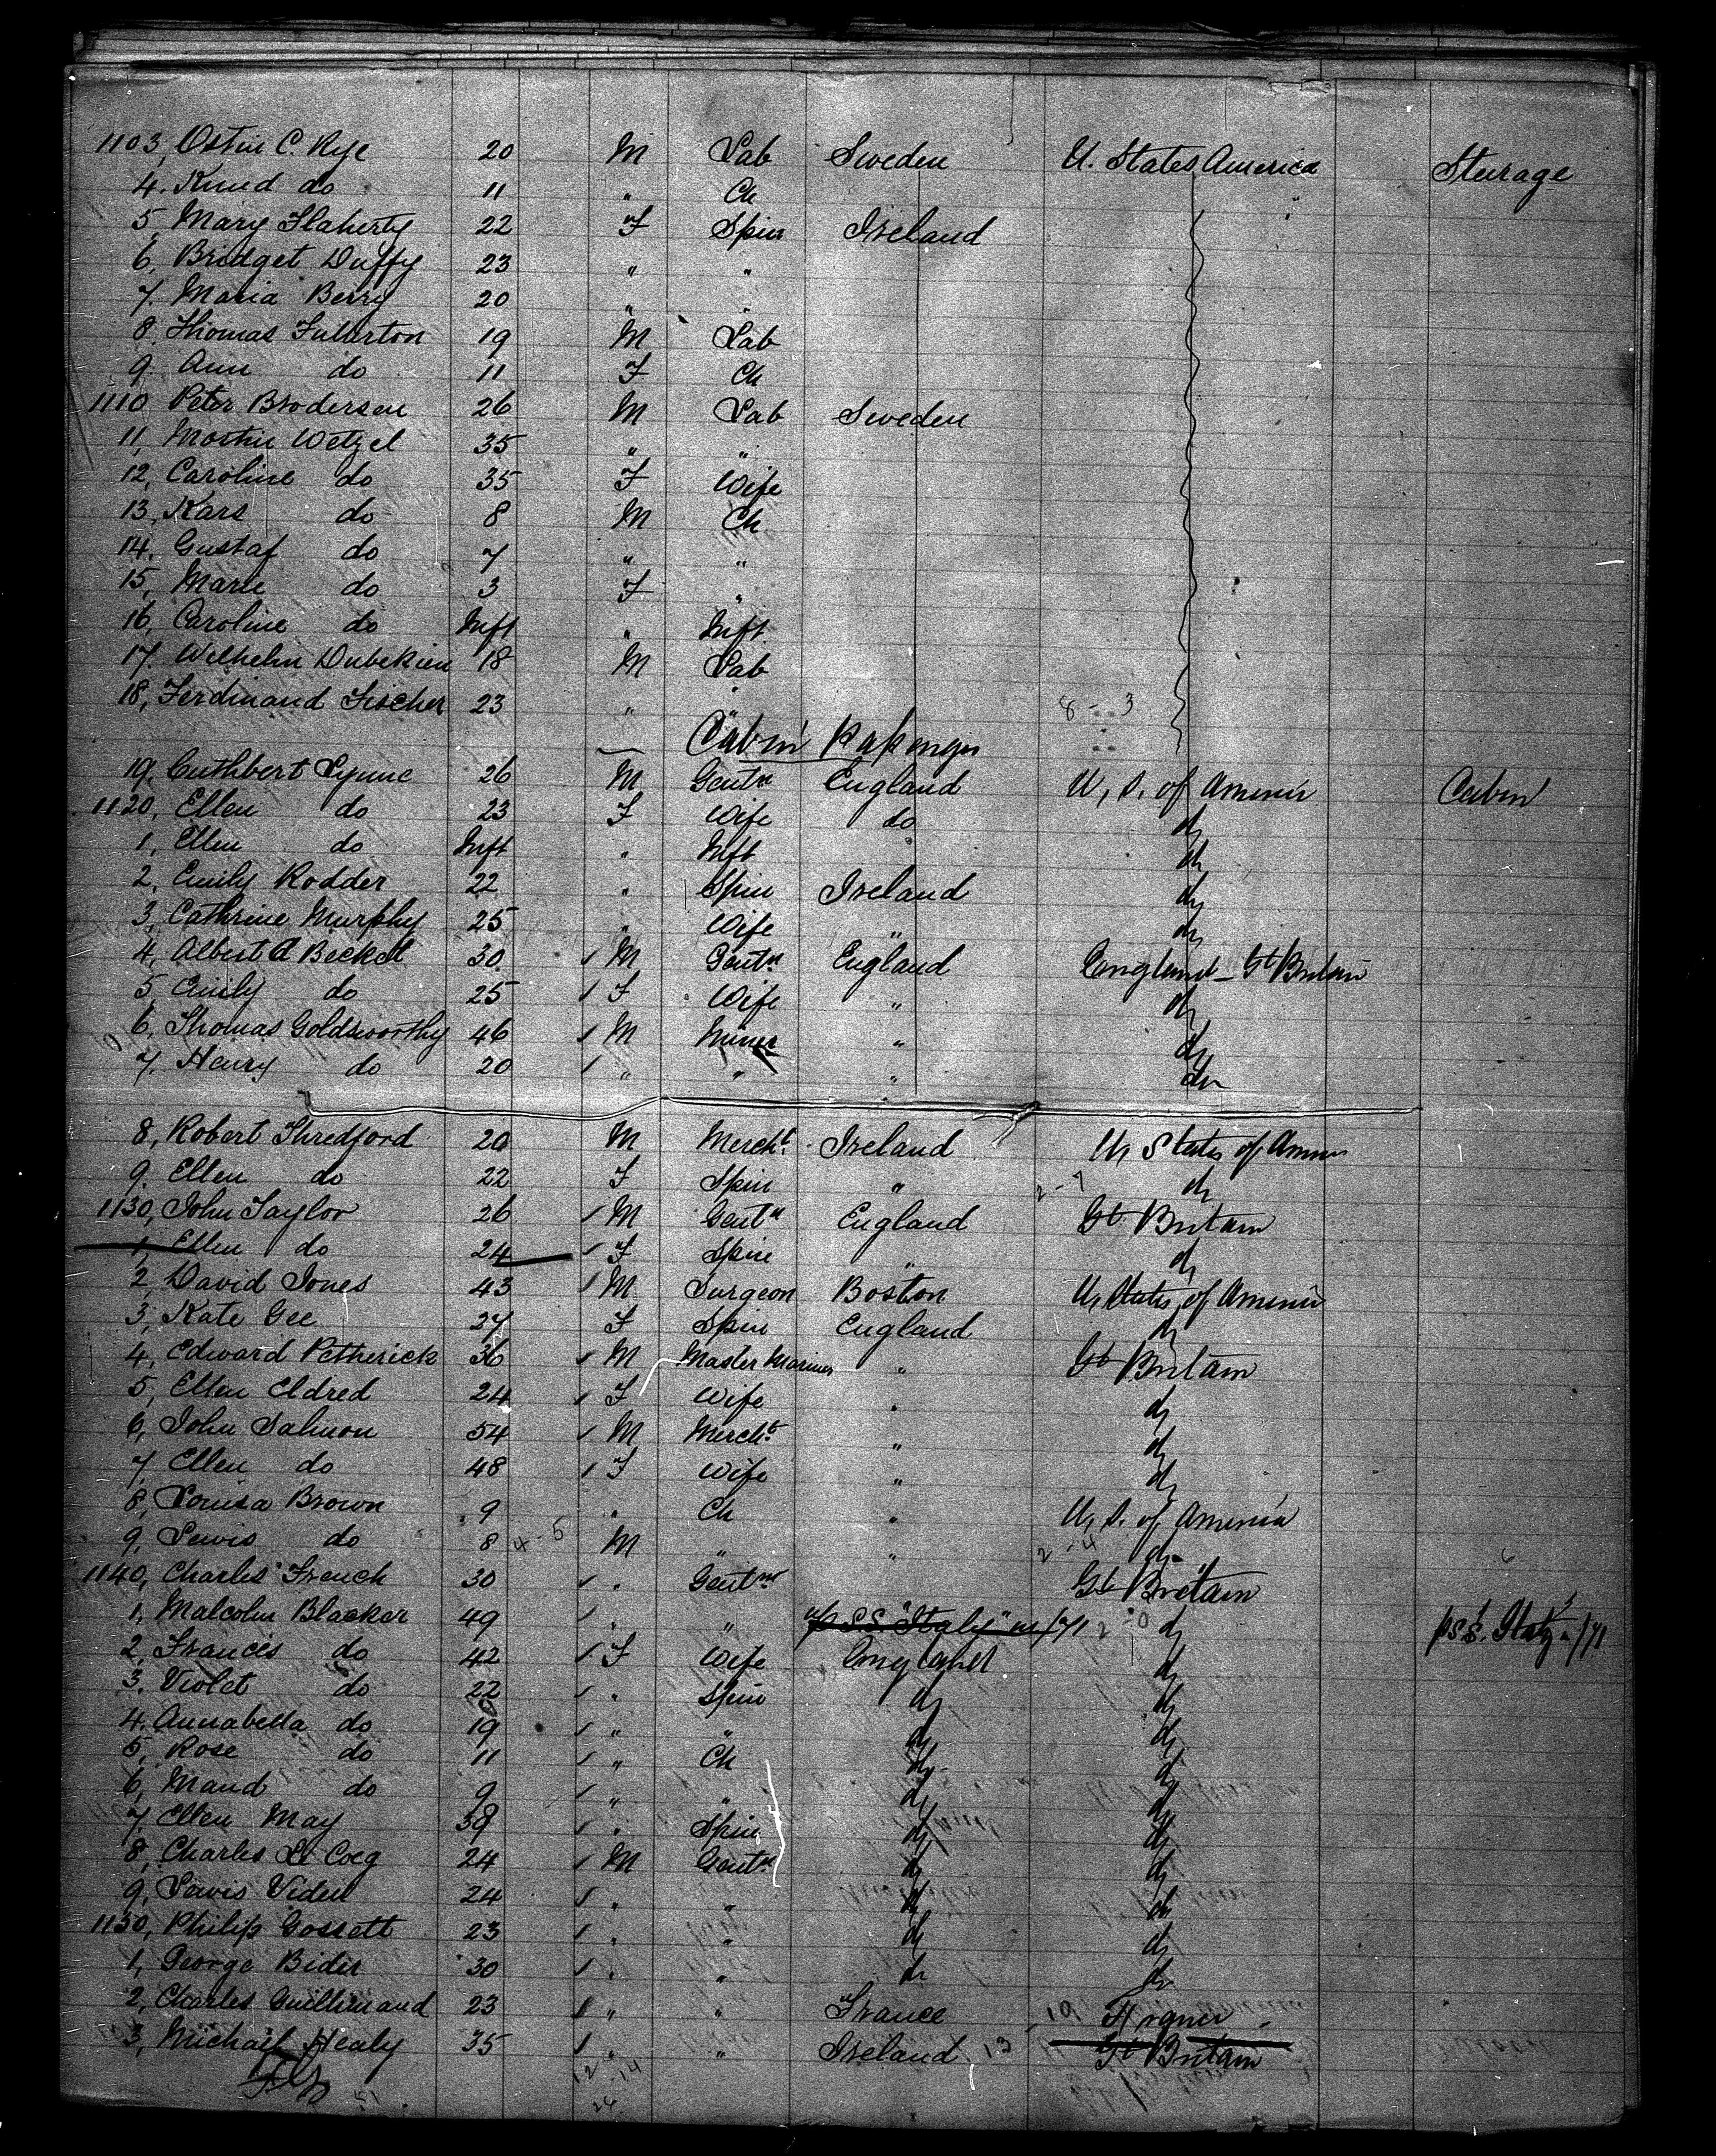 1103, Ostin C. Rye 20 M Lab Sweden U. States America Sturage
4. Knud do 11 " Ch "
5, Mary Flaherty 22 F Spin Ireland
6, Bridget Duffy 23 " "
7. Maria Berry 20 " "
8, Thomas Fullerton 19 M Lab
9. Ann do 11 F Ch
1110 Peter Brodersen 26 M Lab Sweden
11, Martin Wetzel 35 " "
12, Caroline do 35 F Wife
13, Kars do 8 M Ch
14, Gustaf do 7 " "
15, Marie do 3 F "
16, Caroline do Inft " Inft
17. Wilhelm Dubekien 18 M Lab
18, Ferdinand Fischer 23 " " 8 - 3
Cabin Passenger
19, Cuthbert Lynne 26 M Gentn England U, S. of America Cabin
1120, Ellen do 23 F Wife do do
1, Ellen do Inft " Inft do
2, Emily Rodder 22 " Spin Ireland do
3, Cathrine Murphy 25 " Wife " do
4, Albert A Becket 30 M Gentn England England - Gt Britain
5, Emily do 25 F Wife " do
6, Thomas Goldsworthy 46 M Miner " do
7. Henry do 20 " " " do
8, Robert Thredford 20 M Mercht. Ireland U, States of Amer
9. Ellen do 22 F Spin " 2 - 7 do
1130, John Taylor 26 M Gentn England Gt Britain
1, Ellen do 24 F Spin " do
2, David Jones 43 M Surgeon Boston U, States of America
3, Kate Gee 27 F Spin England do
4, Edward Petherick 36 M Master Mariner " Gt Britain
5, Ellen Eldred 24 F Wife " do
6, John Salmon 54 M Mercht " do
7, Ellen do 48 F Wife " do
8, Louisa Brown 9 " Ch " U, S. of America
9, Lewis do 8 4 - 5 M " " 2 - 4 do
1140, Charles French 30 " Gentn " Gt Britain
1, Malcolm Blacker 49 " " p S.S. "Italy" 2 - 0 do p S.S. Italy
2, Francis do 42 F Wife England do
3. Violet do 22 " Spin do do
4. Annabella do 19 " " do do
5, Rose do 11 " Ch do do
6, Maud do 9 " " do do
7, Ellen May 39 " Spin do do
8, Charles Le Coeg 24 M Gentn do do
9, Lewis Viden 24 " " do do
1150, Philip Gossett 23 " " do do
1, George Bider 30 " " do do
2, Charles Guillimand 23 " " France 19
3, Michael Healy 35 " " Ireland 13 Gt Britain
12 - 14
26
51